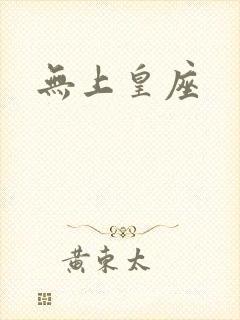 無上皇座
黄東太